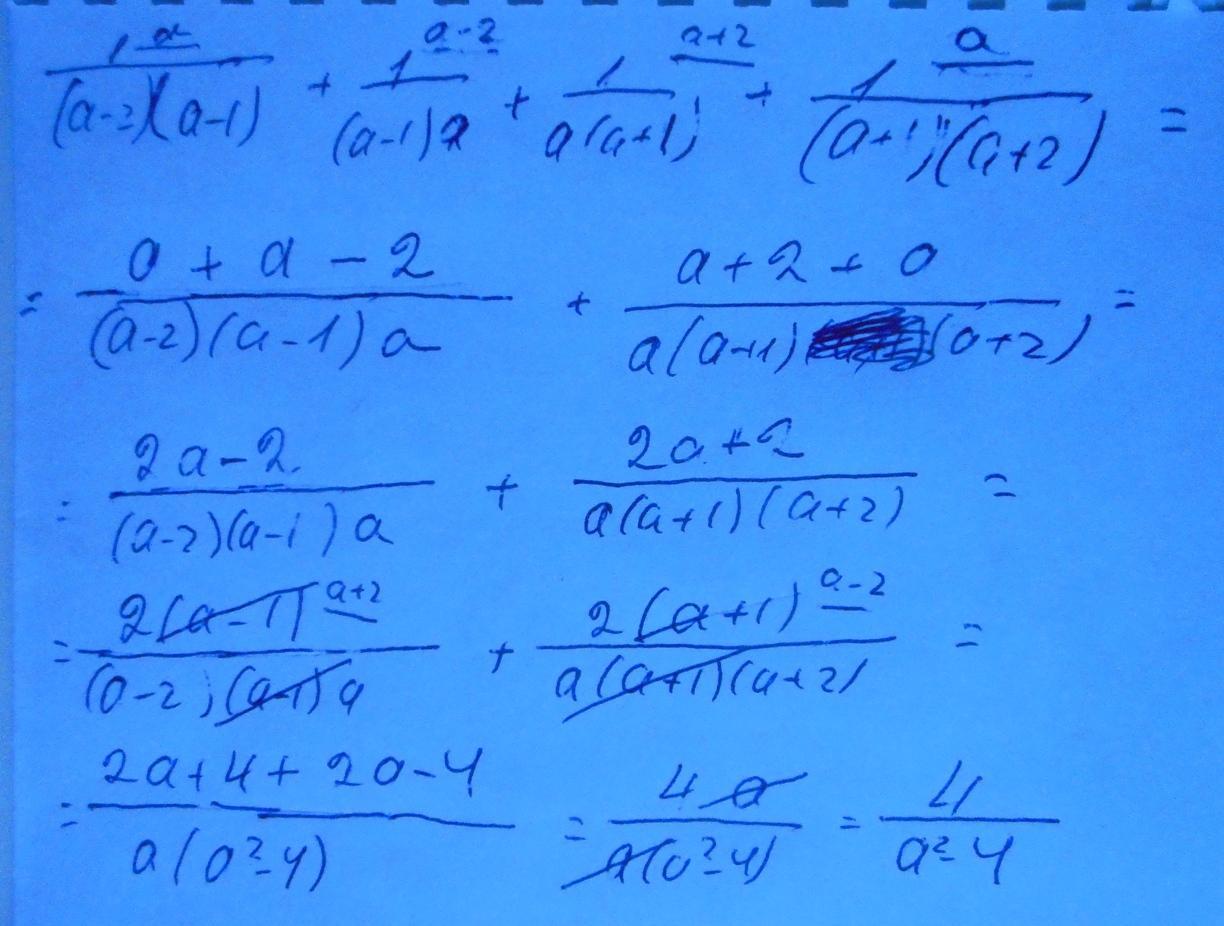 1^a/((a-2)(a-1)) + 1^(a-2)/((a-1)a) + 1^(a+2)/(a(a+1)) + 1^a/((a+1)(a+2)) =
= (a + a - 2)/((a-2)(a-1)a) + (a+2+a)/(a(a+1)(a+2)) =
= (2a-2)/((a-2)(a-1)a) + (2a+2)/(a(a+1)(a+2)) =
= 2(a-1)^(a+2)/((a-2)(a-1)a) + 2(a+1)^(a-2)/(a(a+1)(a+2)) =
= (2a+4+2a-4)/(a(a²-4)) = 4a/(a(a²-4)) = 4/(a²-4)